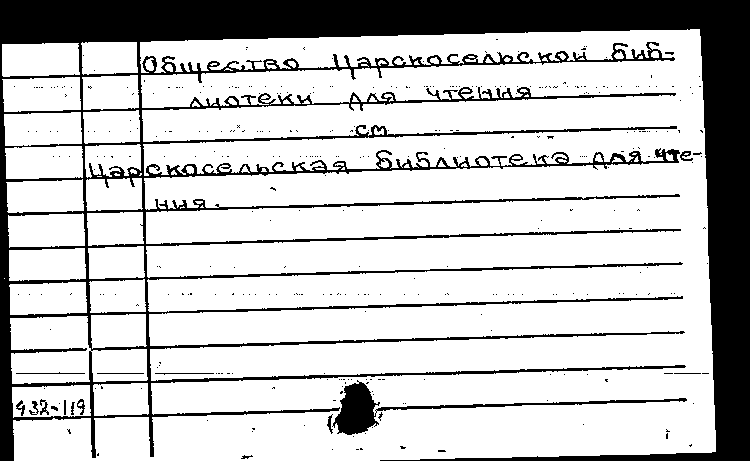 Общество Царскосельской биб=
лиотеки для чтения
см
Царскосельская библиотека для чте-
ния.
932-119